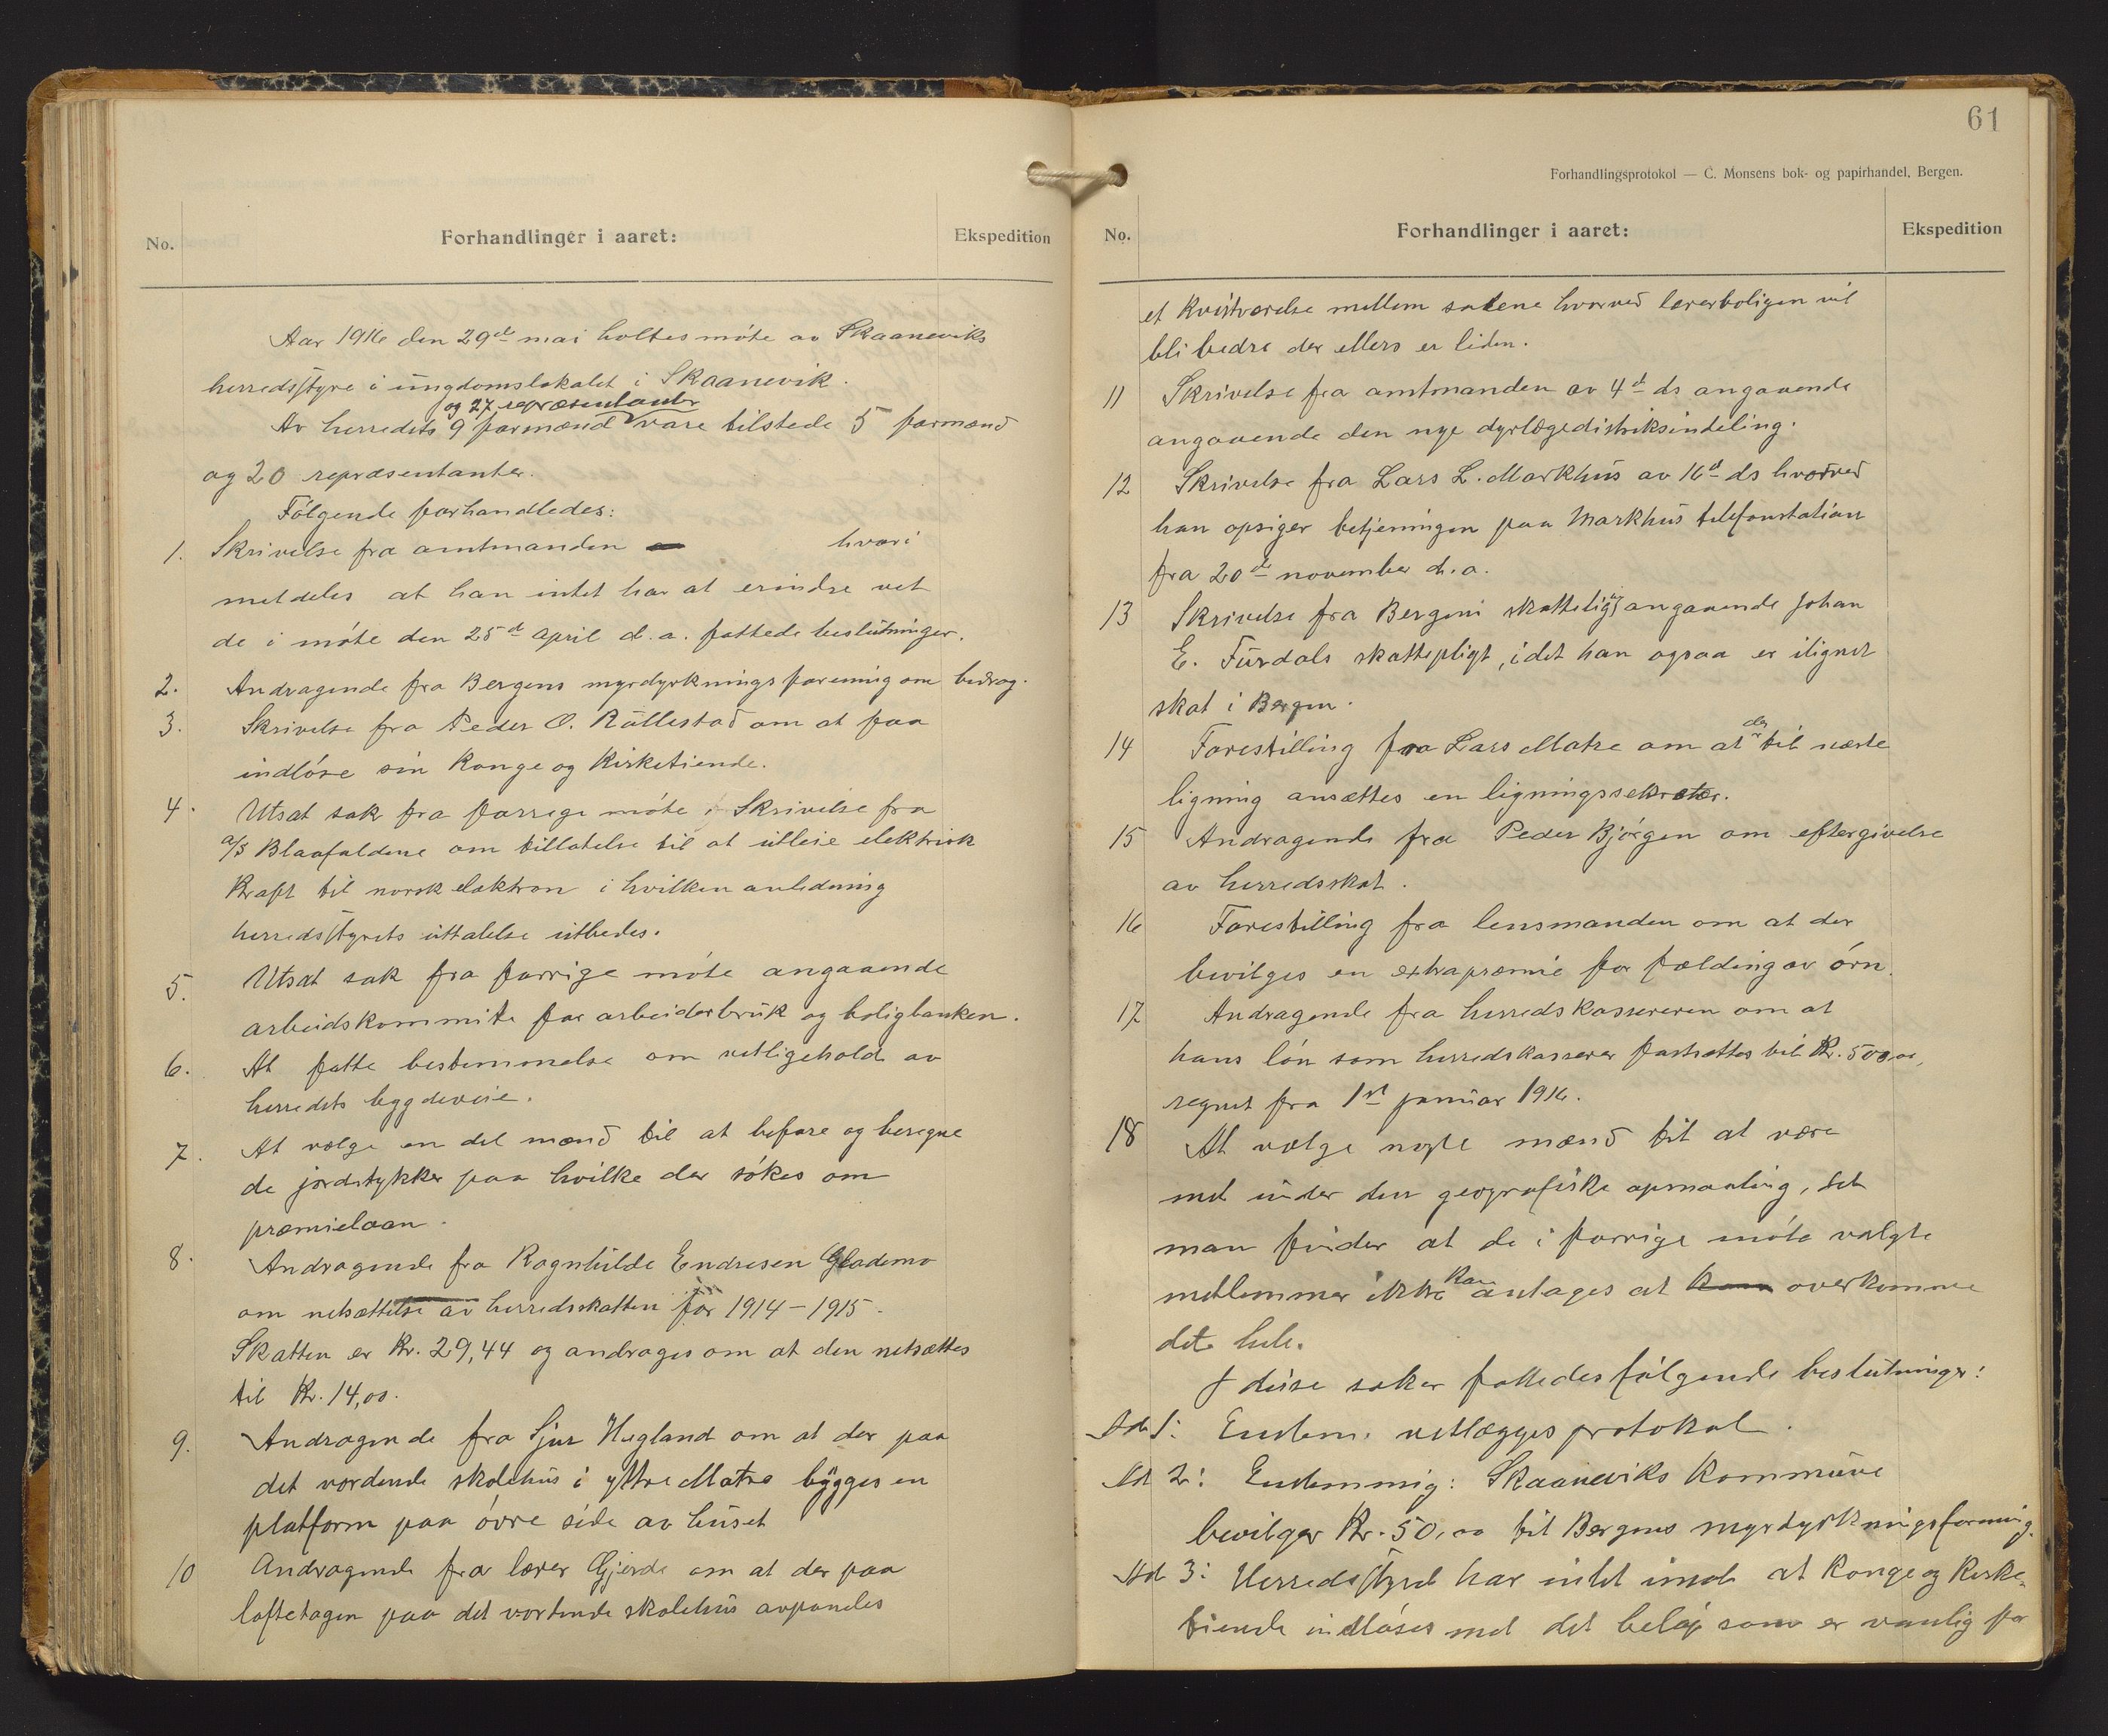 No.
Forhandlinger i aaret:
Ekspedition
Aar 1916 den 29de mai holtes møte av Skaaneviks
herredsstyre i ungdomslokalet i Skaanevik.
og 27 repræsentanter
Av herredets 9 formænd vare tilstede 5 formænd
og 20 repræsentanter.
Følgende forhandledes:
1. Skrivelse fra amtmanden hvori
meldeles at han intet har at erindre ved
de i møte den 25de april d.a. fattede beslutninger.
2. Andragende fra Bergens myrdyrkningsforening om bidrag.
3. Skrivelse fra Peder O. Rullestad om at faa
indløse sin Konge og Kirketiende.
4. Utsat sak fra forrige møte, Skrivelse fra
a/s Blaafaldene om tillatelse til at utleie elektrisk
Kraft til norsk elektron i hvilken anledning
herredsstyrets uttalelse utbedes.
5. Utsat sak fra forrige møte angaaende
arbeidskommite for arbeiderbruk og boligbanken.
6. At fatte bestemmelse om vedligehold av
herredets bygdeveie.
7. At vælge en del mænd til at befare og beregne
de jordstykker paa hvilke der søkes om
præmielaan.
8. Andragende fra Ragnhilde Endresen Glademo
om netsættelse av herredsskatten for 1914-1915.
Skatten er Kr. 29,44 og andrages om at den netsættes
til Kr. 14,00.
9. Andragende fra Sjur Hegland om at der paa
det vordende skolehus i ytre Matre bygges en
platform paa øvre side av huset
10 Andragende fra lærer Gjerde om at der paa
loftetagen paa det vordende skolehus avpaneles
61
Forhandlingsprotokol — C. Monsens bok- og papirhandel, Bergen.
No.
Forhandlinger i aaret:
Ekspedition
et Kvistværelse mellem salene hvorved lærerboligen vil
bli bedre der ellers er liden.
11 Skrivelse fra amtmanden av 4de ds angaaende
angaaende den nye dyrlægedistriksindeling.
12 Skrivelse fra Lars L. Markhus av 16de ds hvorved
han opsiger betjeningen paa Markhus telefonstation
fra 20de november d.a.
13 Skrivelse fra Bergens angaaende Johan
E. Furdals skattepligt, idet han ogsaa er ilignet
skat i Bergen.
14 Forestilling fra Lars Matre om at der til næste
ligning ansættes en ligningssekretær.
15 Andragende fra Peder Bjørgen om eftergivelse
av herredsskat.
16 Forestilling fra lensmanden om at der
bevilges en extrapræmie for fælding av ørn.
17 Andragende fra herredskassereren om at
hans løn som herredskasserer fastsættes til Kr. 500,00,
regnet fra 1st januar 1916.
18 At vælge nogle mænd til at være
med under den geografiske opmaaling, da
man finder at de i forrige møte valgte
medlemmer ikke kan antages at overkomme
det hele.
I disse saker fattedes følgende beslutninger:
Ad 1: Enstem. vedlægges protokol.
Ad 2: Enstemmig: Skaaneviks Kommune
bevilger Kr. 50,00 til Bergens myrdyrkningsforening.
Ad 3: Herredsstyret har intet imod at Konge og Kirke-
tiende indløses med det beløp som er vanlig for